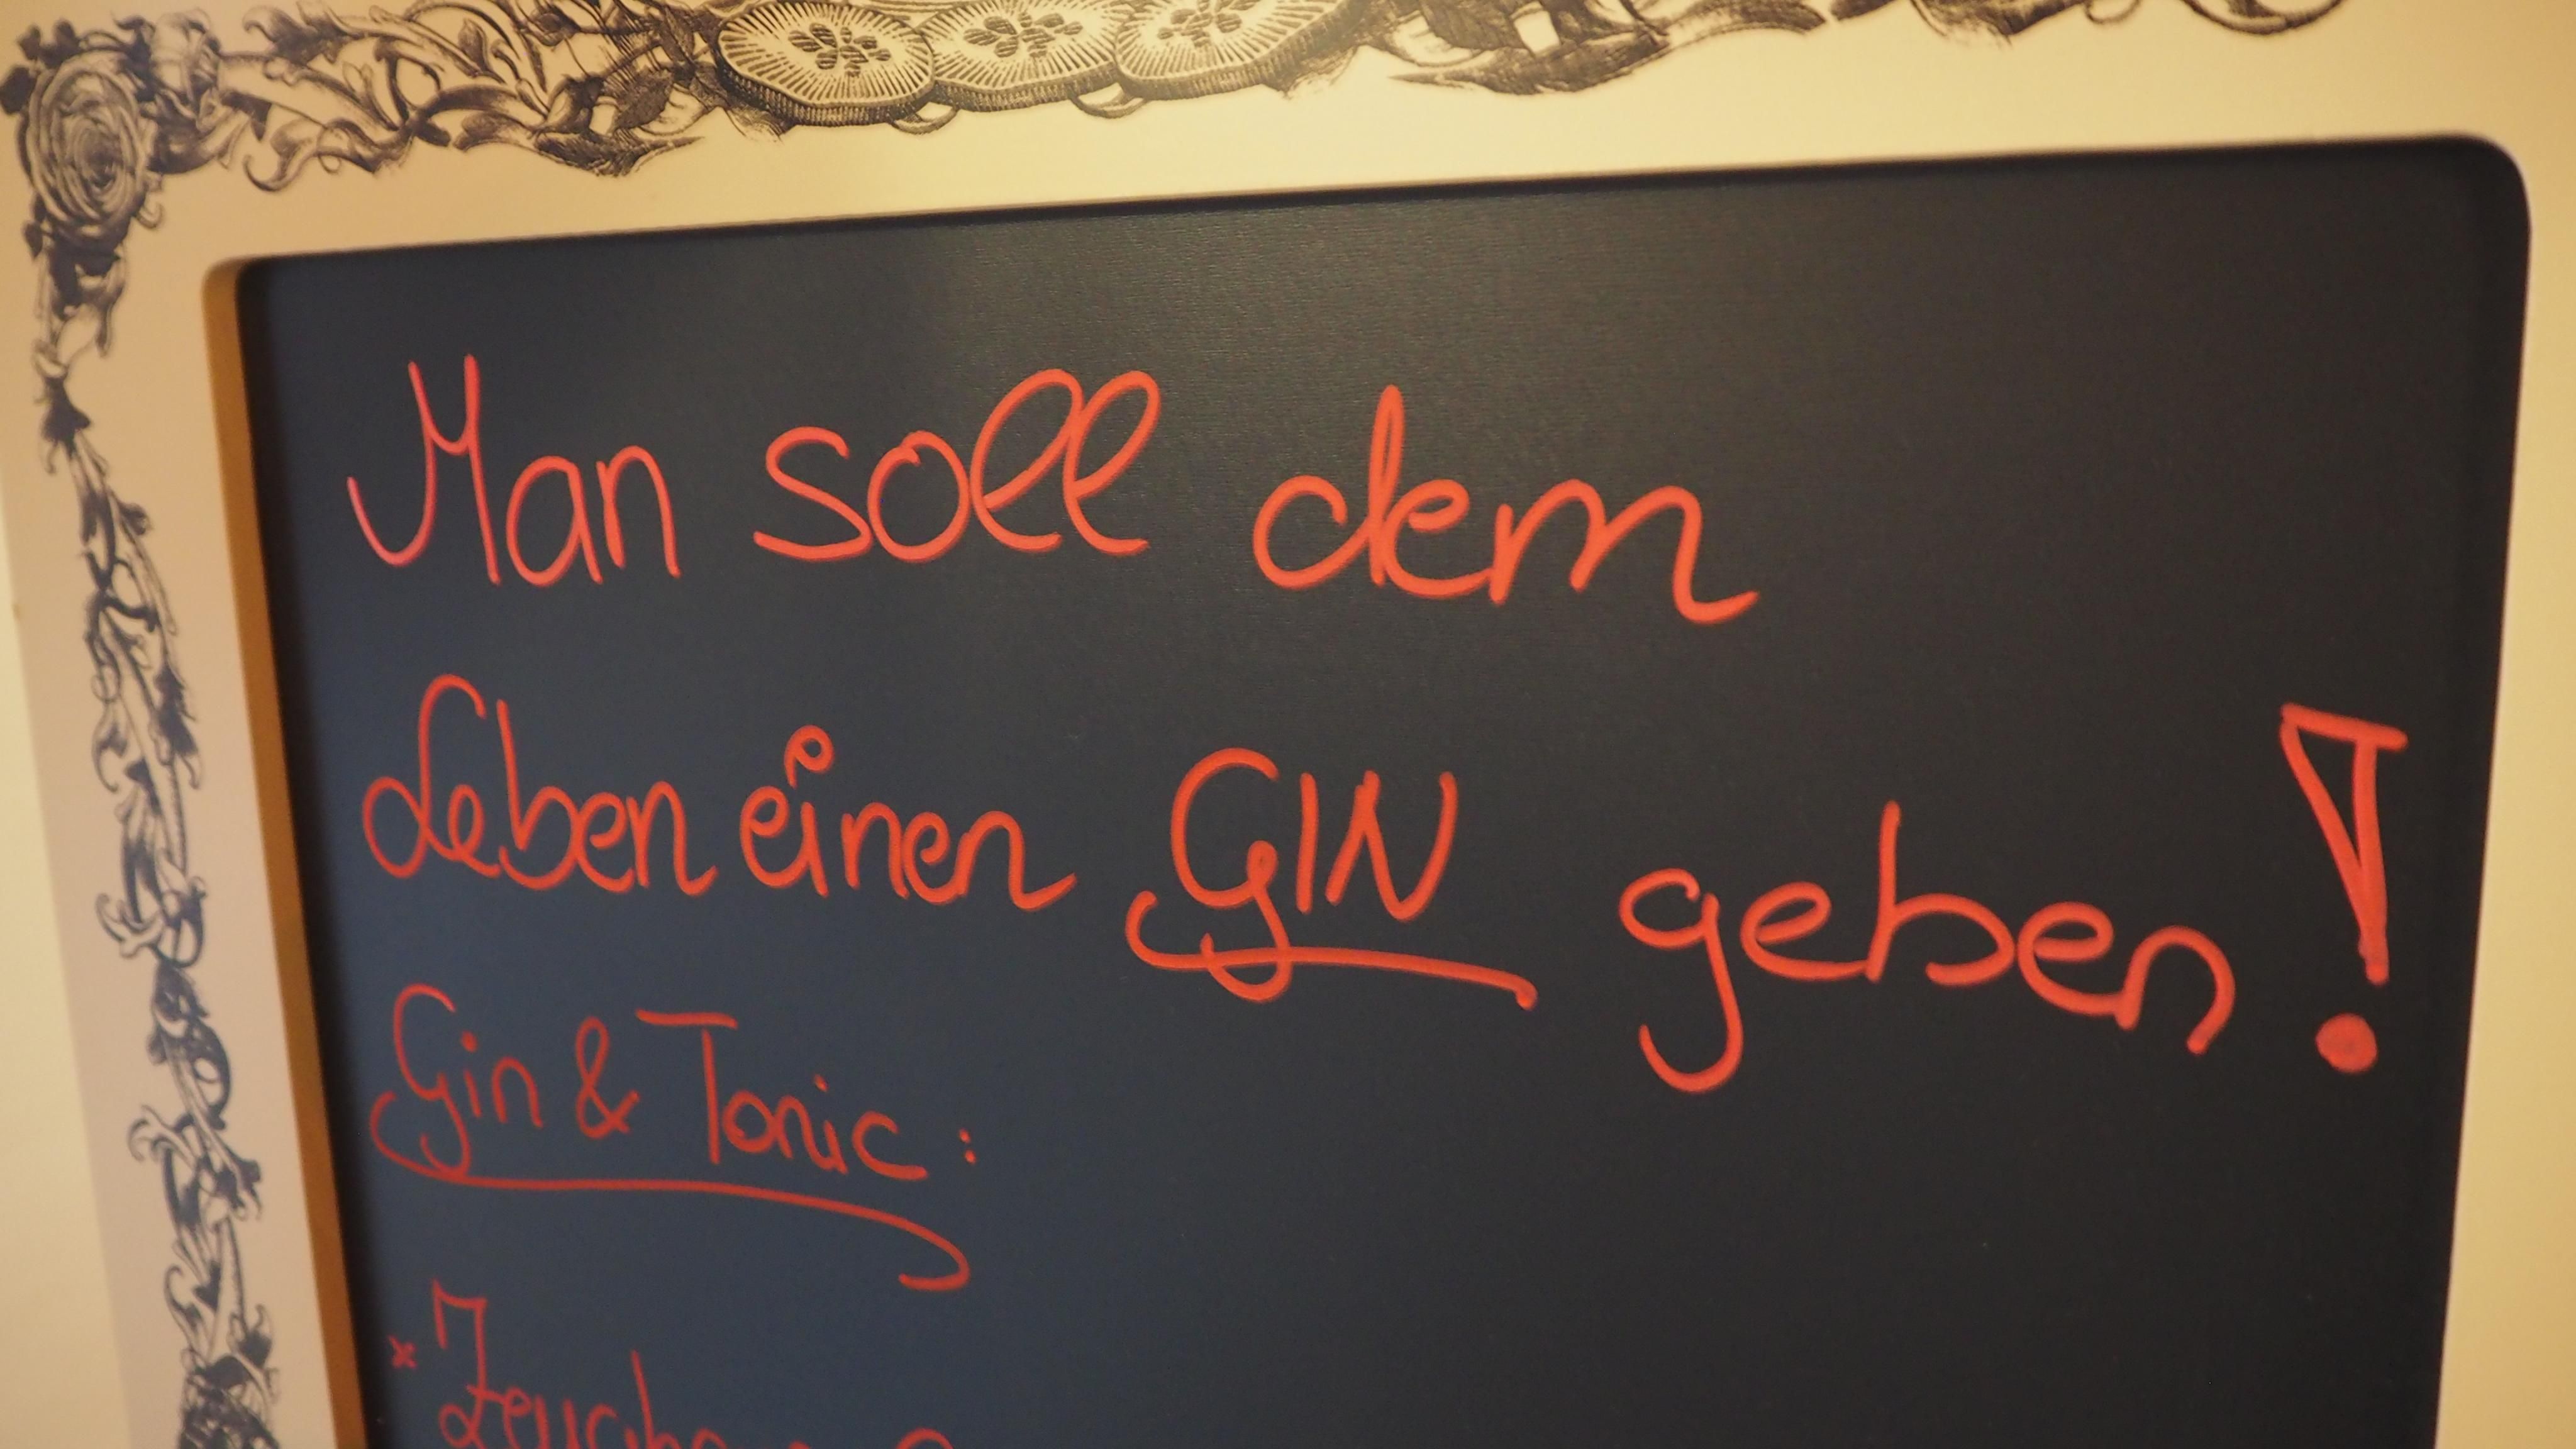 Man soll dem
Leben einen GIN geben!
Gin & Tonic: